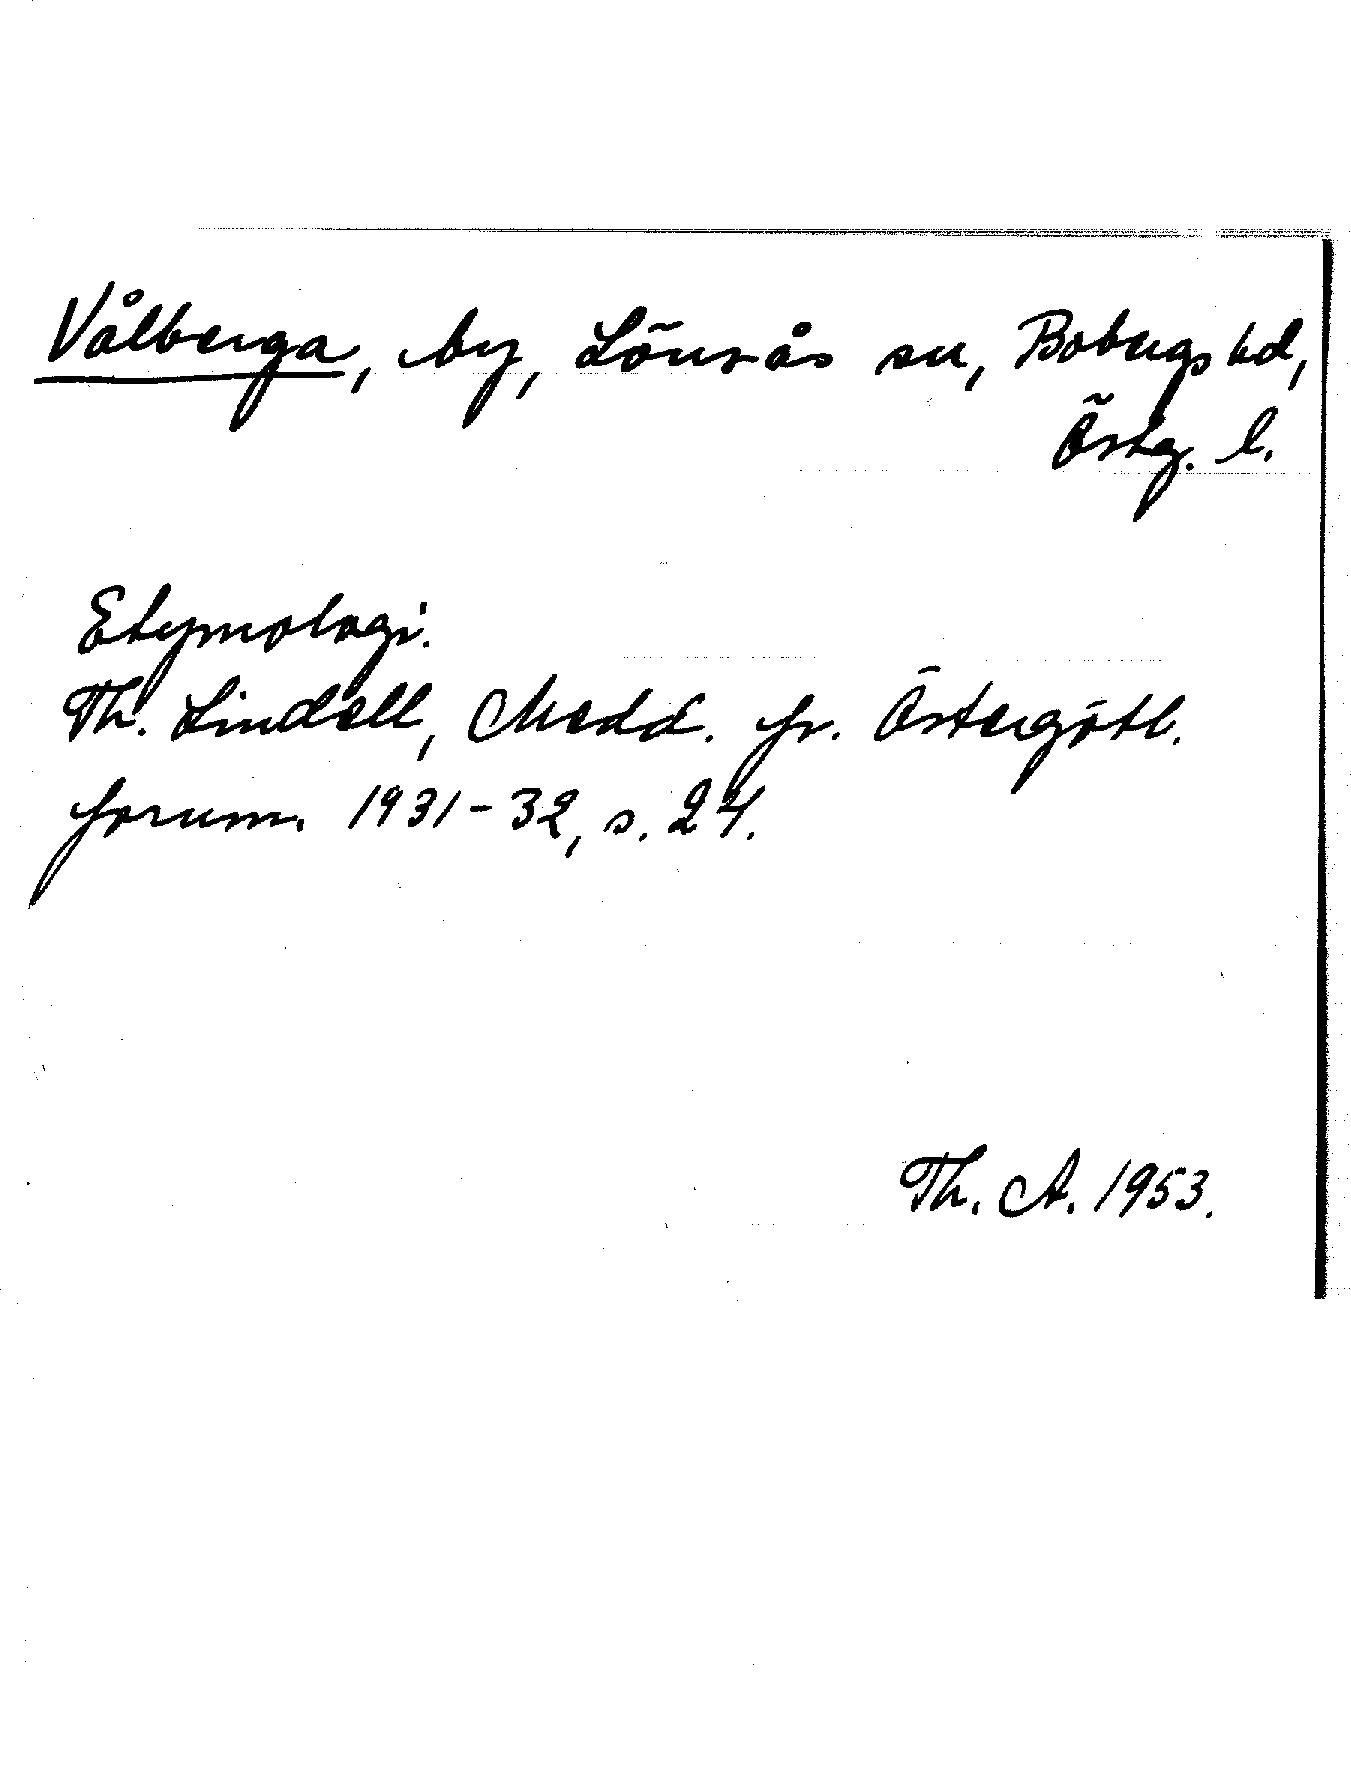 Vålberga, by, Lönsås sn, Bobergs hd,
Östg. l.
Etymologi.
Th. Lindell, Medd. fr. Östergötl.
fornm. 1931-32, s. 24.
Th. A. 1953.